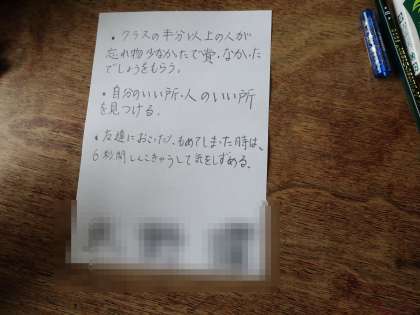 ・クラスの半分以上の人が
忘れ物少なかたで賞、なかった
でしょうをもらう。
・自分のいい所・人のいい所
を見つける。
・友達におこったり、もめてしまった時は、
6秒間しんこきゅうして気をしずめる。